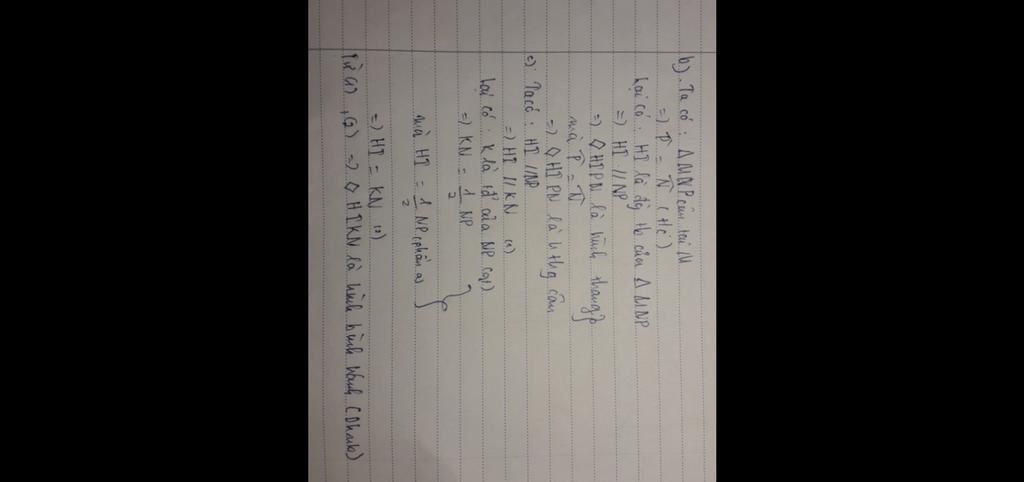 b). Ta có: Δ MNP cân tại M
=> P̂ = N̂ (t/c)
Lại có: HI là đg tb của Δ MNP
=> HI // NP
=> ◊ HIPN là hình thang
mà P̂ = N̂
=> ◊ HIPN là h thg cân
c). Ta có: HI // NP
=> HI // KN (1)
Lại có: K là tđ của NP (gt)
=> KN = 1/2 NP
mà HI = 1/2 NP (phần a) }
=> HI = KN (2)
Từ (1), (2) => ◊ HIKN là hình bình hành (Dhnb)